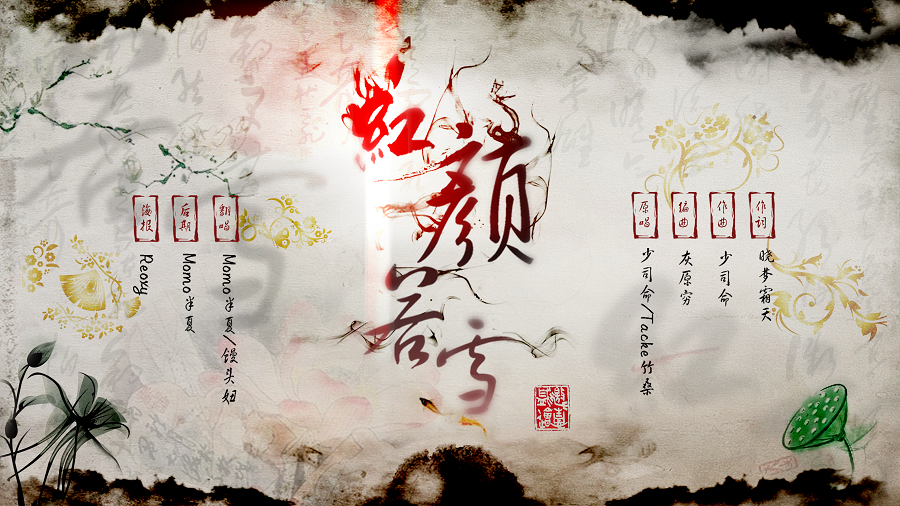 红颜若雪
作词
晓梦霜天
作曲
少司命
编曲
灰原穷
原唱
少司命/Tacke竹桑
翻唱
Momo半夏/馒头妞
后期
Momo半夏
海报
Reoxy